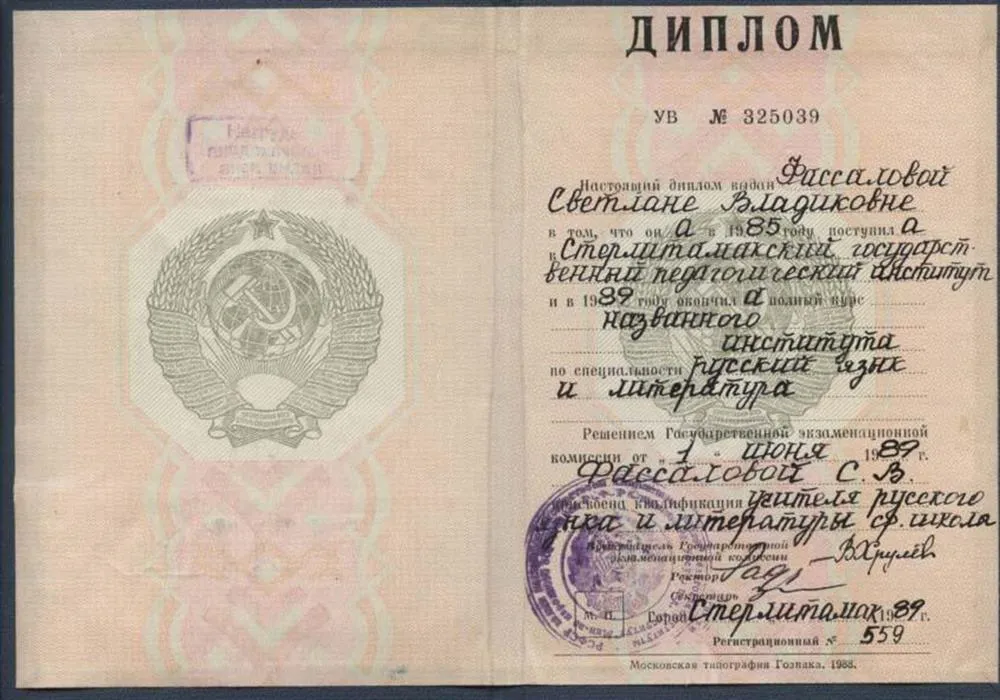 ДИПЛОМ
УВ № 325039
Настоящий диплом выдан Фассаловой
Светлане Владиковне
в том, что он а в 1985 году поступил а
в Стерлитамакский государст-
венный педагогический институт
и в 1989 году окончил а полный курс
названного
института
по специальности русский язык
и литература
Решением Государственной экзаменационной
комиссии от „ 1 “ июня 1989 г.
Фассаловой С. В.
присвоена квалификация учителя русского
языка и литературы ср. школа
Председатель Государственной
экзаменационной комиссии В.Хрулёв
Ректор
Секретарь
М. П. Город Стерлитамак 1989 г.
Регистрационный № 559
Московская типография Гознака. 1988.